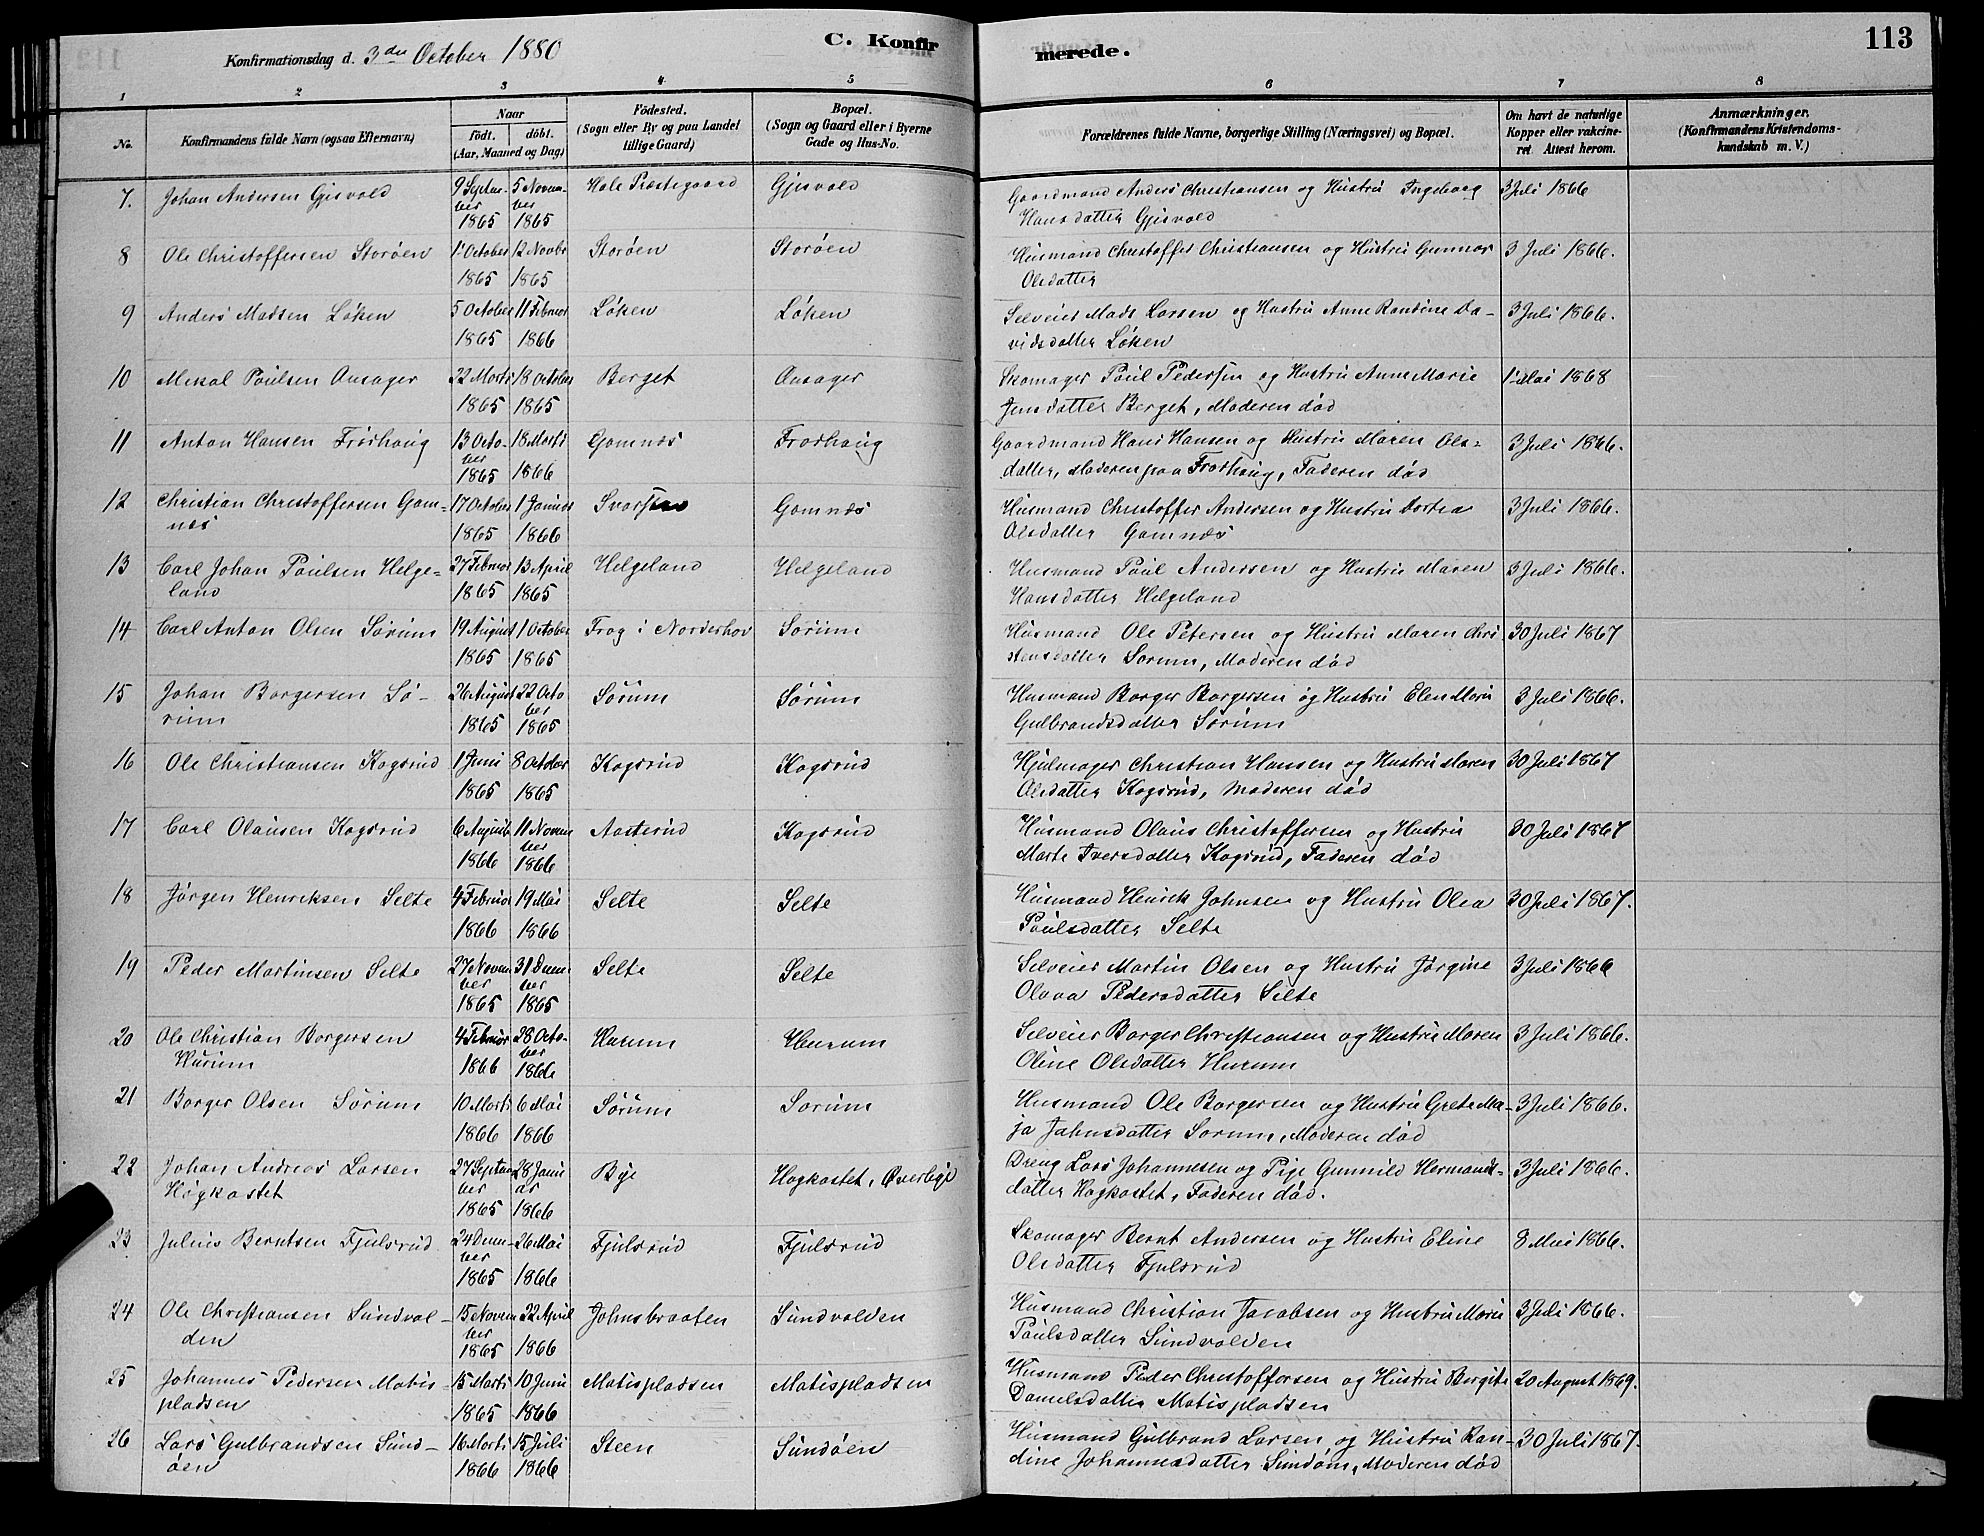 Konfirmationsdag d. 3die October 1880
C. Konfirmerede.
113
1 2 3 4 5 6 7 8
No.
Konfirmandens fulde Navn (ogsaa Efternavn)
Naar
födt. döbt.
(Aar, Maaned og Dag)
Födested.
(Sogn eller By og paa Landet
tillige Gaard)
Bopæl.
(Sogn og Gaard eller i Byerne
Gade og Hus-No.
Forældrenes fulde Navne, borgerlige Stilling (Næringsvei) og Bopæl.
Om havt de naturlige
Kopper eller vakcine-
ret. Attest herom.
Anmærkninger.
(Konfirmandens Kristendoms-
kundskab m. V.)
7. Johan Andersen Gjesvold 9 September 1865 5 November 1865 Hole Præstegaard Gjesvold Gaardmand Anders Christiansen og Hustru Ingeborg 3 Juli 1866
Hansdatter Gjesvold
8 Ole Christoffersen Storøen 1 October 1865 12 Novbr 1865 Storøen Storøen Husmand Christoffer Christiansen og Hustru Gunnor 3 Juli 1866.
Olsdatter
9 Anders Madsen Løken 5 October 1865 11 Februar 1866 Løken Løken Selveier Mads Larsen og Hustru Anne Randine Da- 3 Juli 1866.
vidsdatter Løken
10 Mekal Paulsen Aasager 22 Marts 1865 18 October 1865 Berget Aasager Skomager Paul Pedersen og Hustru Anne Marie 1 Mai 1868
Jensdatter Berget, Moderen død
11 Anton Hansen Frøshaug 13 October 1865 18 Marts 1866 Gomnæs Frøshaug Gaardmand Hans Hansen og Hustru Maren Ols- 3 Juli 1866.
datter, Moderen paa Frøshaug, Faderen død
12 Christian Christoffersen Gom- 17 October 1865 1 Januar 1866 Gomnæs Husmand Christoffer Andersen og Hustru Dortea 3 Juli 1866.
næs Olsdatter Gomnæs
13 Carl Johan Paulsen Helge- 27 Februar 1865 13 April 1865 Helgeland Helgeland Husmand Paul Andersen og Hustru Maren 3 Juli 1866.
land Hansdatter Helgeland
14 Carl Anton Olsen Sørum 19 August 1865 1 October 1865 Frog i Norderhov Sørum Husmand Ole Petersen og Hustru Maren Chri- 30 Juli 1867
stensdatter Sørum, Moderen død
15 Johan Borgersen Sø- 26 August 1865 22 October 1865 Sørum Sørum Husmand Borger Borgersen og Hustru Elen Marie 3 Juli 1866.
rum Gulbrandsdatter Sørum
16 Ole Christiansen Kogsrud 1 Juni 1865 8 October 1865 Kogsrud Kogsrud Hjulmager Christian Hansen og Hustru Maren 30 Juli 1867
Olsdatter Kogsrud, Moderen død
17 Carl Olausen Kogsrud 6 August 1866 11 November 1866 Aasterud Kogsrud Husmand Olaus Christoffersen og Hustru 30 Juli 1867
Marte Iversdatter Kogsrud, Faderen død
18 Jørgen Henriksen Selte 4 Februar 1866 19 Mai 1866 Selte Selte Husmand Henrik Johnsen og Hustru Olea 30 Juli 1867.
Paulsdatter Selte
19 Peder Martinsen Selte 27 November 1865 31 December 1865 Selte Selte Selveier Martin Olsen og Hustru Jørgine 3 Juli 1866
Olava Pedersdatter Selte
20 Ole Christian Borgersen 4 Februar 1866 28 October 1866 Hurum Hurum Selveier Borger Christiansen og Hustru Maren 3 Juli 1866.
Hurum Oline Olsdatter Hurum
21 Borger Olsen Sørum 10 Marts 1866 6 Mai 1866 Sørum Sørum Husmand Ole Borgersen og Hustru Grete Ma- 3 Juli 1866.
ja Jahnsdatter Sørum, Moderen død
22 Johan Andreas Larsen 27 September 1865 28 Januar 1866 Bye Høgkastet, Øverbye Dreng Lars Johannesen og Pige Gunnild Hermands- 3 Juli 1866.
Høgkastet datter Høgkastet, Faderen død.
23 Julius Berntsen Fjulsrud 24 December 1865 26 Mai 1866 Fjulsrud Fjulsrud Skomager Bernt Andersen og Hustru Eline 8 Mai 1866.
Olsdatter Fjulsrud
24 Ole Christiansen Sundvol- 15 November 1865 22 April 1866 Johnsbraaten Sundvolden Husmand Christian Jacobsen og Hustru Marie 3 Juli 1866.
den Paulsdatter Sundvolden
25 Johannes Pedersen Matis- 15 Marts 1865 10 Juni 1866 Matispladsen Matispladsen Husmand Peder Christoffersen og Hustru Bergite 20 August 1869.
pladsen Danielsdatter Matispladsen
26 Lars Gulbrandsen Sund- 16 Marts 1866 15 Juli 1866 Steen Sundøen Husmand Gulbrand Larsen og Hustru Ran- 30 Juli 1867.
øen dine Johannesdatter Sundøen, Moderen død